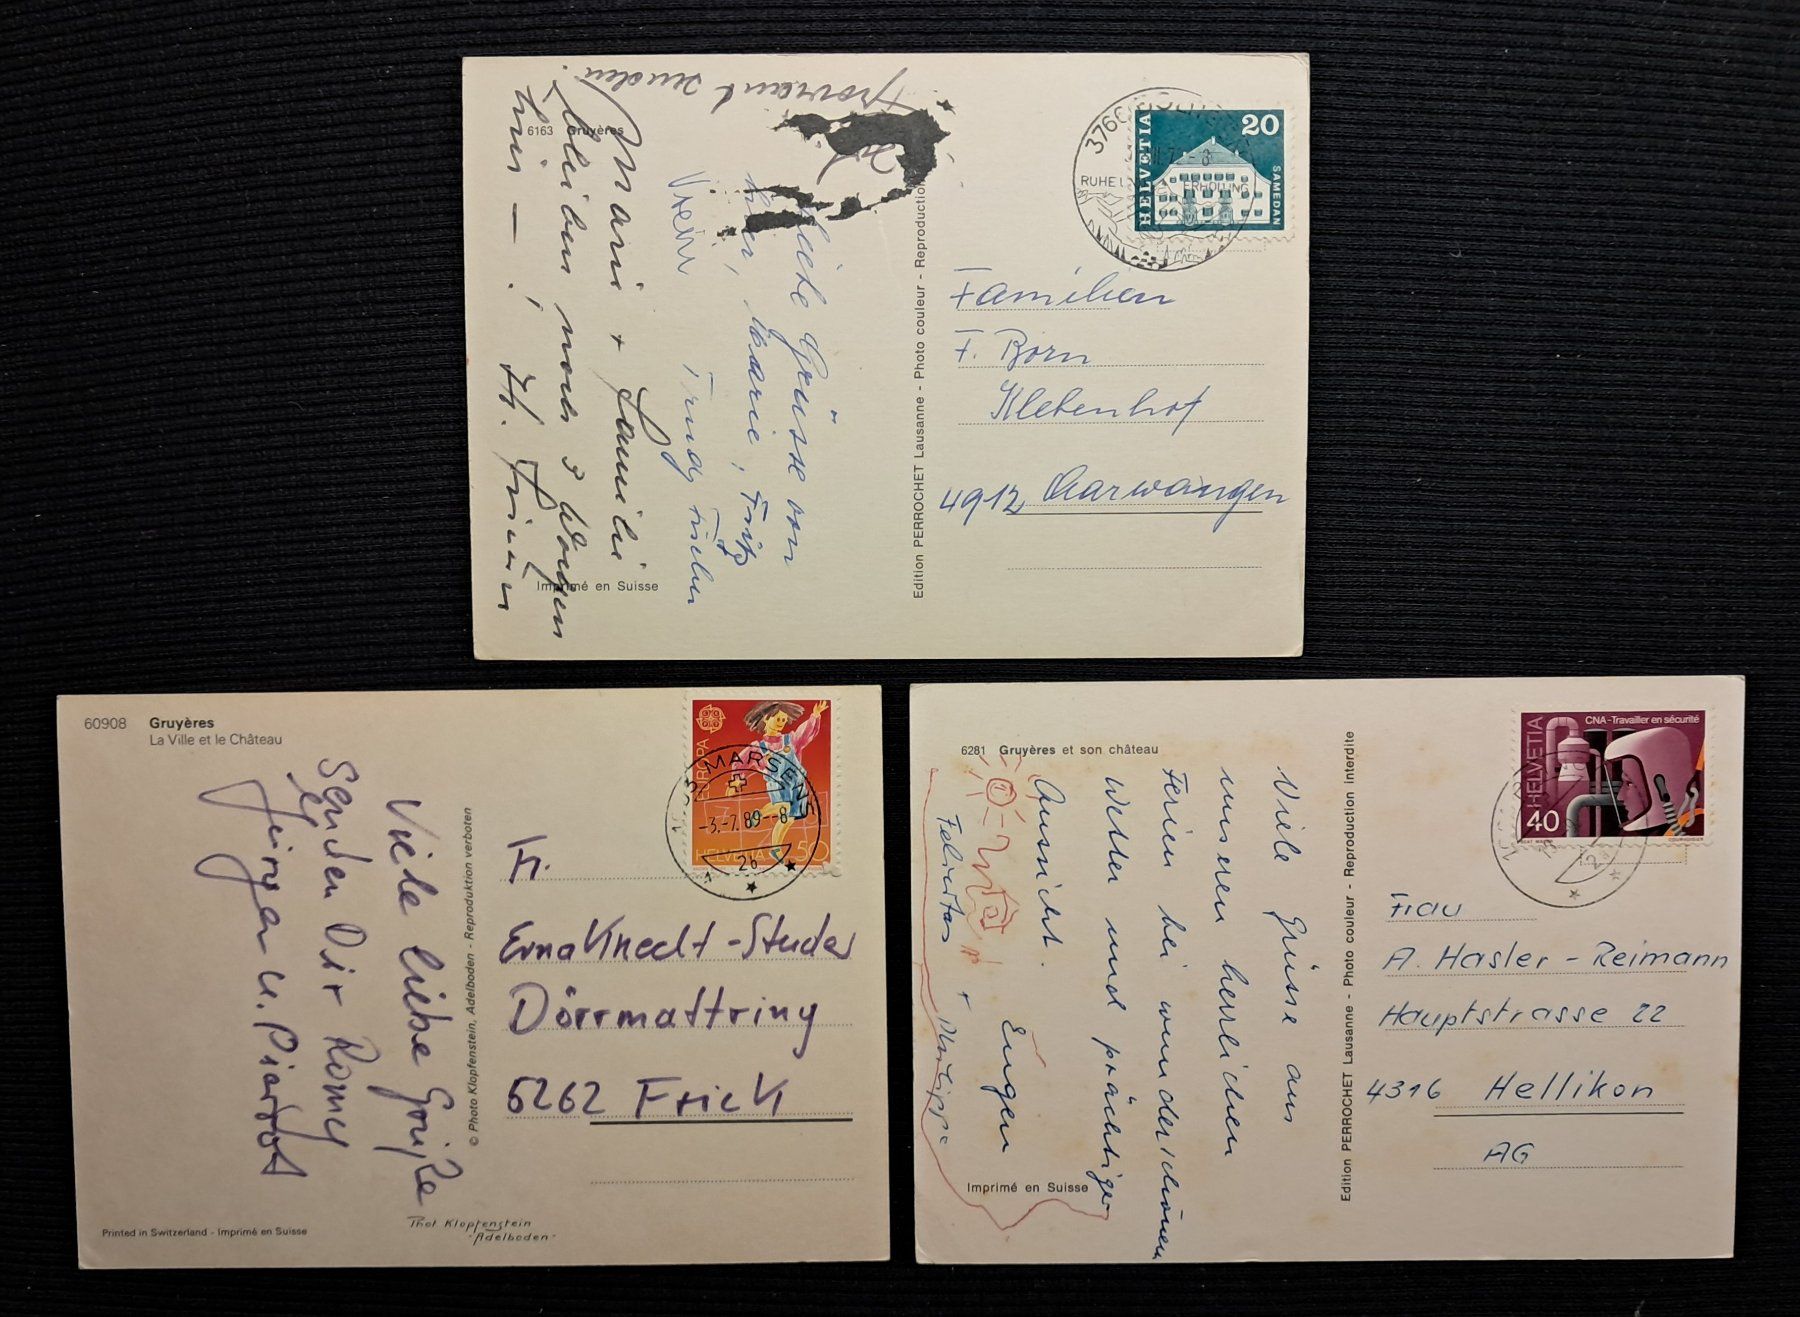 6163 Gruyères
proviant senden!
liche Grüsse von
hier, Marie, Fritz
Vreni Trudy
Mari + Familie
bleiben noch 3 Wochen
hier — !
Imprimé en Suisse
Edition PERROCHET Lausanne - Photo couleur - Reproduction
3766
RUHE
ERHOLUNG
HELVETIA
20
SAMEDAN
Familien
F. Born
Klebenhof
4912 Aarwangen
60908 Gruyères
La Ville et le Château
Viele liebe Grüße
Senden Dir Romy
Jürgen u.
Printed in Switzerland - Imprimé en Suisse
Phot Klopfenstein
-Adelboden-
© Photo Klopfenstein, Adelboden - Reproduktion verboten
EUROPA
HELVETIA 50
MARSENS
-3.-7.89--8
Fr.
Erna Knecht-Studer
Dörrmattring
5262 Frick
6281 Gruyères et son château
Viele Grüsse aus
unseren herrlichen
Ferien bei wunderschönem
Wetter und prächtiger
Aussicht. Eugen
Felicitas + Philippe
Imprimé en Suisse
Edition PERROCHET Lausanne - Photo couleur - Reproduction interdite
CNA-Travailler en sécurité
HELVETIA
40
Frau
A. Hasler-Reimann
Hauptstrasse 22
4316 Hellikon
AG